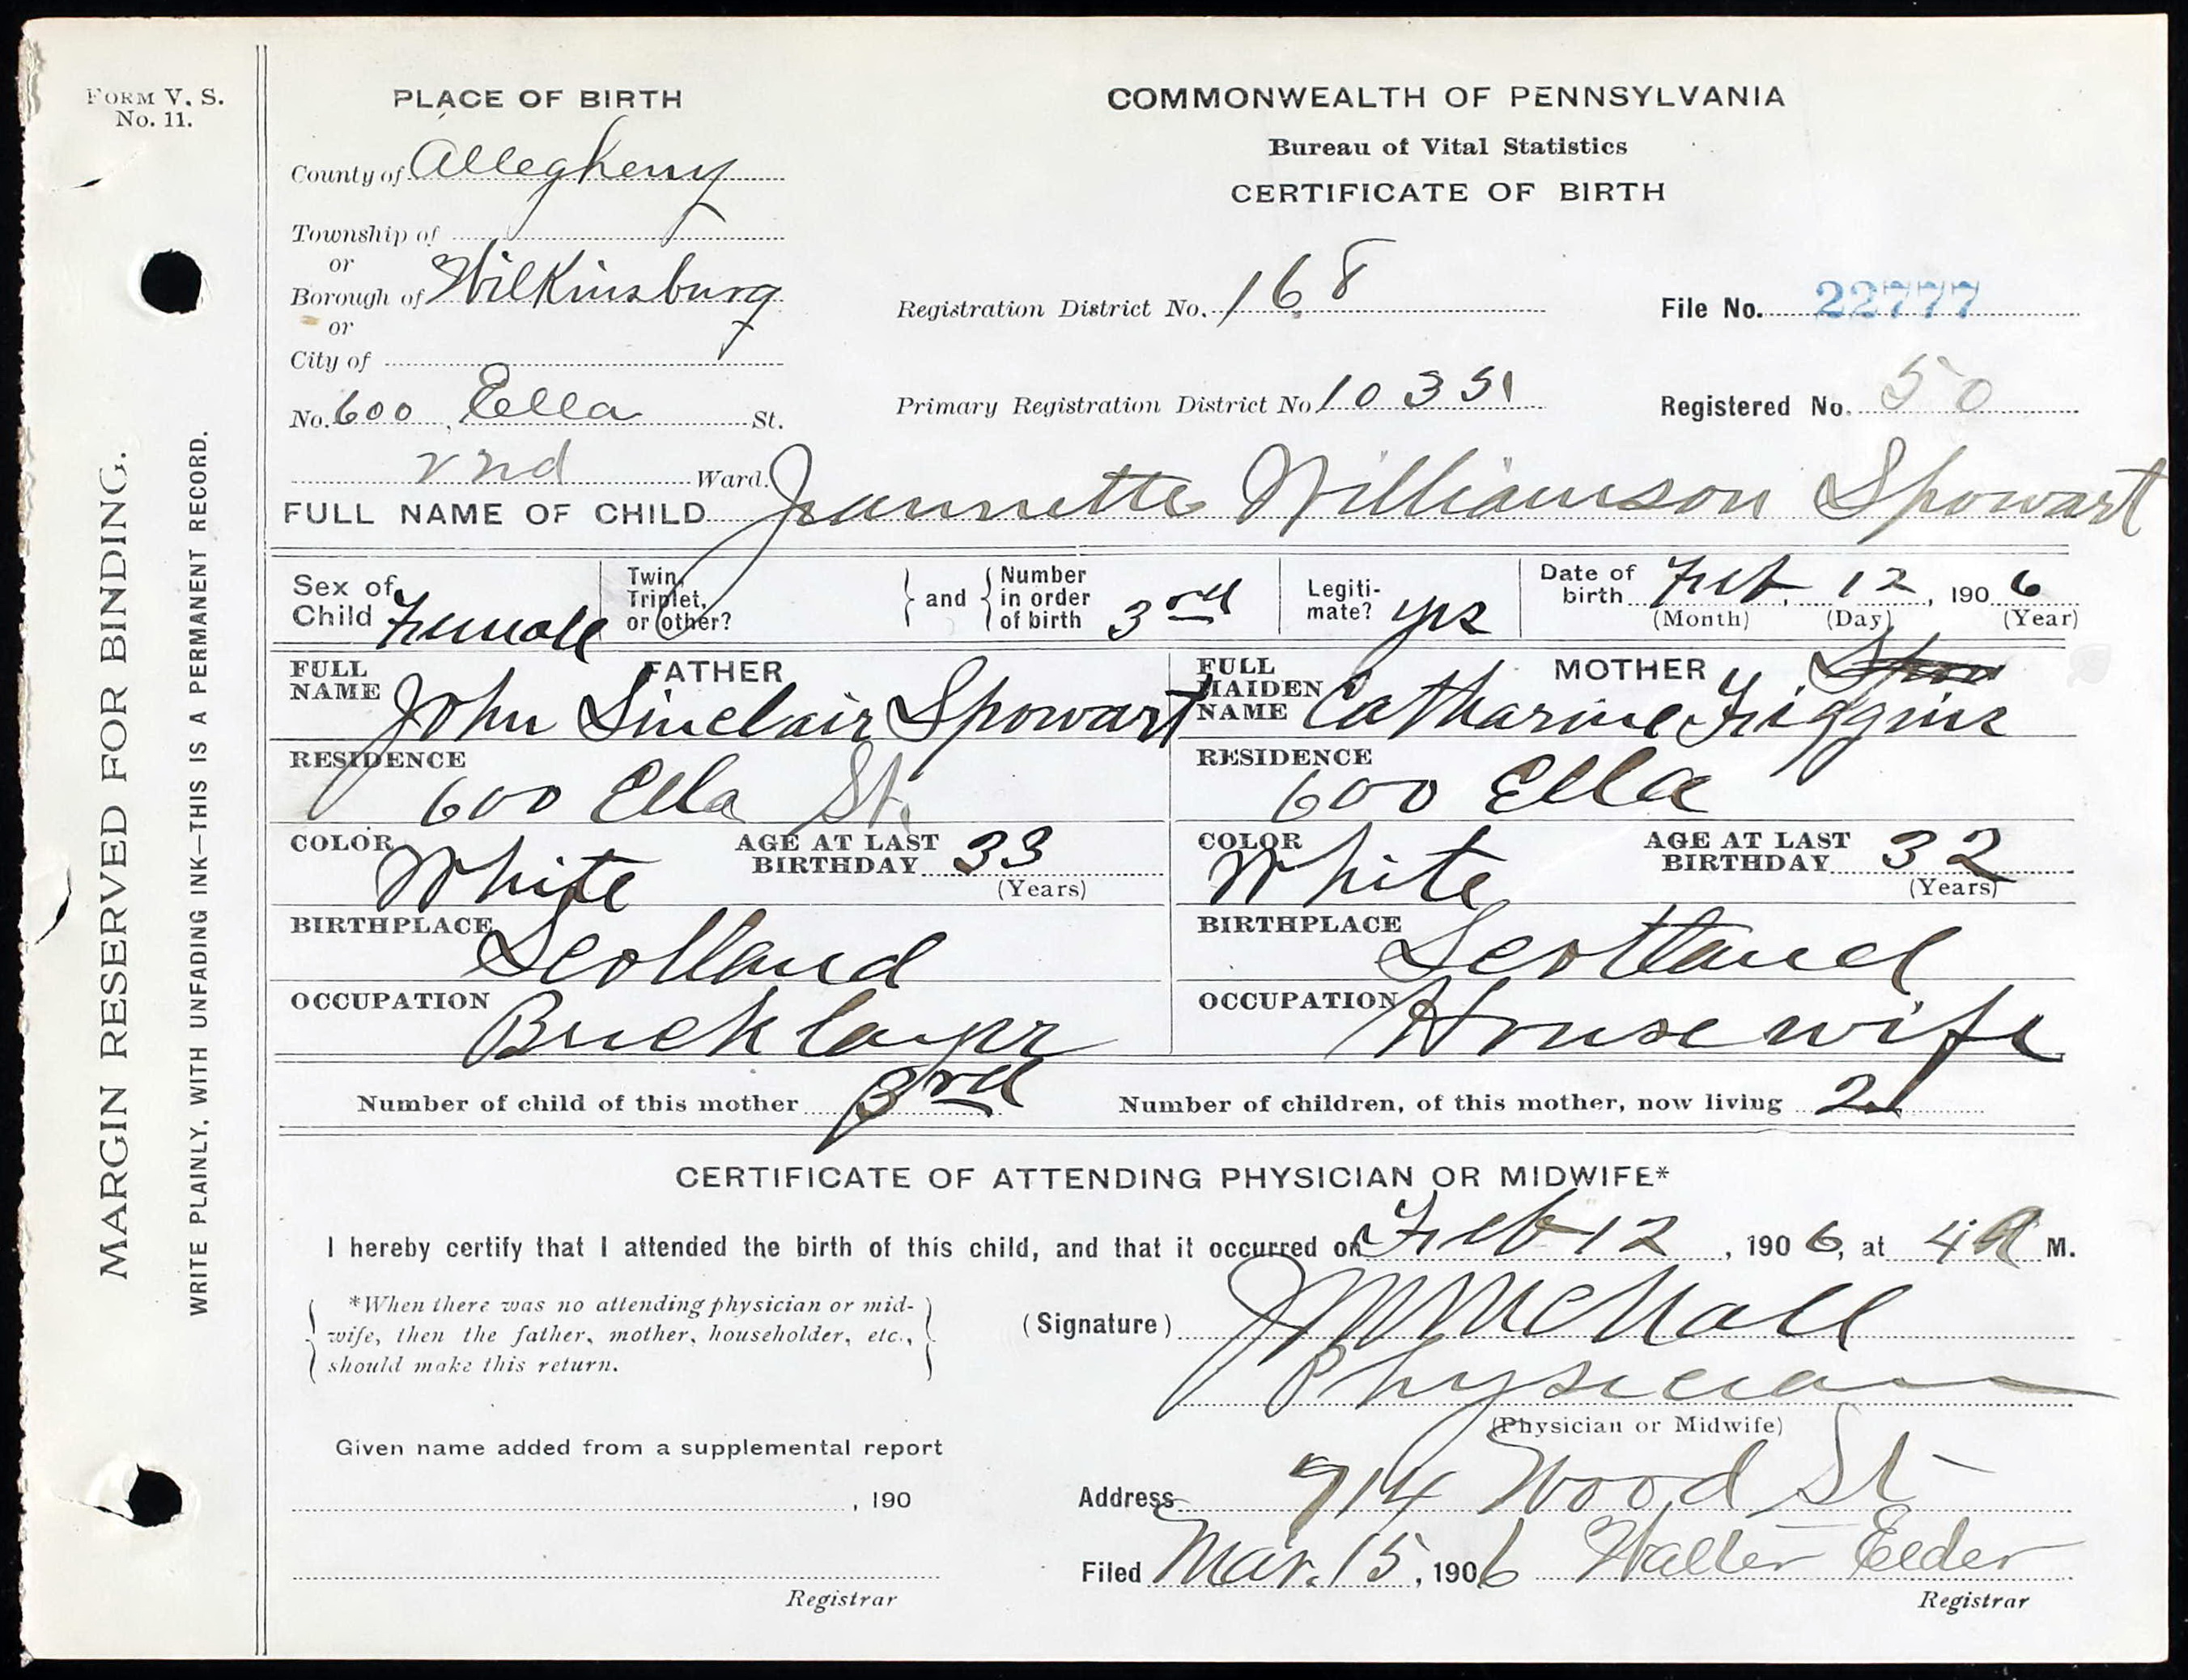 FORM V. S.
No. 11.
MARGIN RESERVED FOR BINDING.
WRITE PLAINLY, WITH UNFADING INK—THIS IS A PERMANENT RECORD.
PLACE OF BIRTH
County of Allegheny
Township of
or
Borough of Wilkinsburg
or
City of
No. 600, Ella St.
2nd Ward.
COMMONWEALTH OF PENNSYLVANIA
Bureau of Vital Statistics
CERTIFICATE OF BIRTH
Registration District No. 168
File No. 22777
Primary Registration District No 10351
Registered No. 50
FULL NAME OF CHILD Jeannette Williamson Spowart
Sex of Child Female
Twin, Triplet, or other?
and
Number in order of birth 3rd
Legiti-mate? yes
Date of birth Feb, 12, 1906
(Month) (Day) (Year)
FATHER
FULL NAME John Sinclair Spowart
RESIDENCE
600 Ella St.
COLOR White
AGE AT LAST BIRTHDAY 33
(Years)
BIRTHPLACE Scotland
OCCUPATION Bricklayer
MOTHER Spow
FULL MAIDEN NAME Catharine Friggins
RESIDENCE
600 Ella
COLOR White
AGE AT LAST BIRTHDAY 32
(Years)
BIRTHPLACE Scotland
OCCUPATION Housewife
Number of child of this mother 3rd
Number of children, of this mother, now living 2
CERTIFICATE OF ATTENDING PHYSICIAN OR MIDWIFE*
I hereby certify that I attended the birth of this child, and that it occurred on Feb 12, 1906, at 4 A M.
*When there was no attending physician or mid-
wife, then the father, mother, householder, etc.,
should make this return.
(Signature) J M McNall
Physician
(Physician or Midwife)
Given name added from a supplemental report
, 190
Registrar
Address 914 Wood St
Filed Mar. 15, 1906 Walter Elder
Registrar